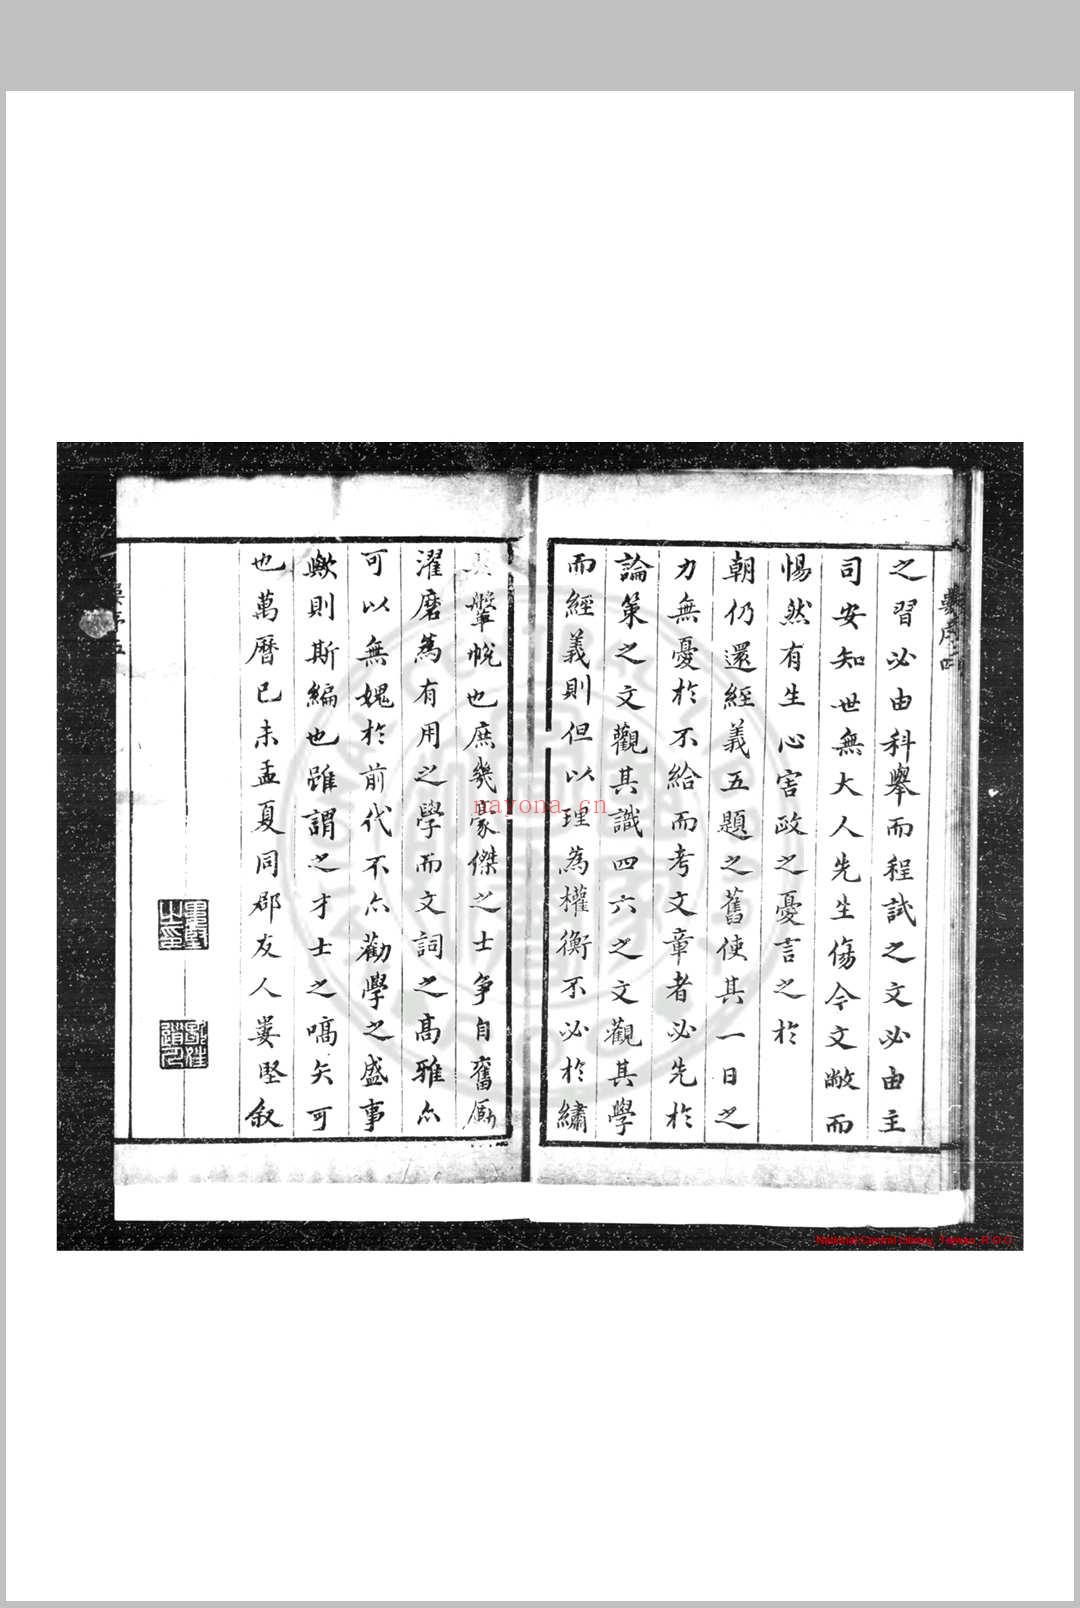 之習必由科舉而程試之文必由主
司安知世無大人先生傷今文敝而
惕然有生心害政之憂言之於
朝仍還經義五題之舊使其一日之
力無憂於不給而考文章者必先於
論策之文觀其識四六之文觀其學
而經義則但以理為權衡不必於繡
鞶帨也庶幾豪傑之士爭自奮勵
濯磨為有用之學而文詞之高雅亦
可以無媿於前代不亦勸學之盛事
歟則斯編也雖謂之才士之嚆矢可
也萬曆己未孟夏同郡友人婁堅叙
婁序四
婁序五
nayona.cn
National Central Library, Taiwan, R.O.C